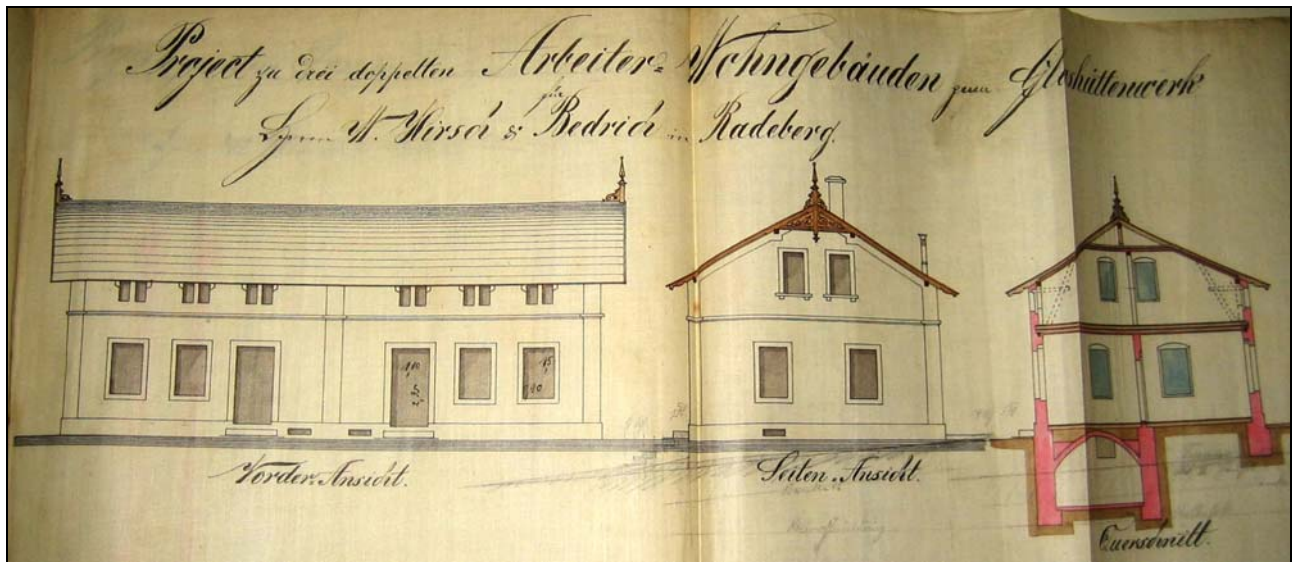 Project zu drei doppelten Arbeiter-Wohngebäuden zum Glashüttenwerk
für
Herrn W. Hirsch & Bedrich in Radeberg.
1,10
2,25
15
90
Vorder-Ansicht.
Seiten-Ansicht.
Querschnitt.